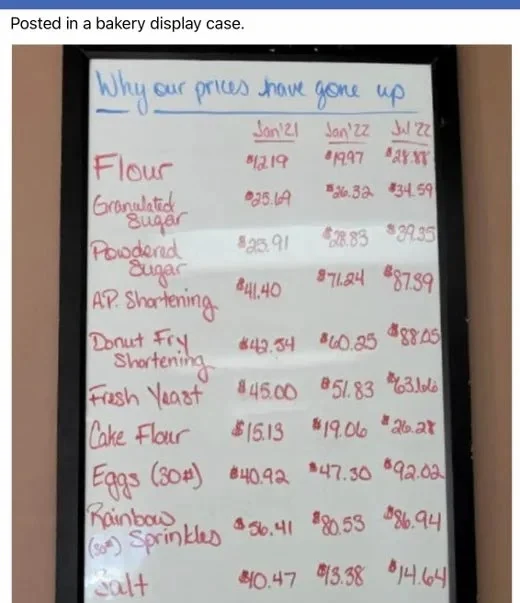 Posted in a bakery display case.
Why our prices have gone up
Jan'21 Jan'22 Jul'22
Flour $12.19 $19.97 $28.88
Granulated $25.69 $26.32 $34.59
Sugar
Powdered $25.91 $28.83 $39.35
Sugar
A.P. Shortening $41.40 $71.24 $87.39
Donut Fry $42.54 $60.25 $88.05
Shortening
Fresh Yeast $45.00 $51.83 $63.66
Cake Flour $15.13 $19.06 $26.28
Eggs (30#) $40.92 $47.30 $92.02
Rainbow $56.41 $80.53 $86.94
(50#) Sprinkles
Salt $10.47 $13.38 $14.64